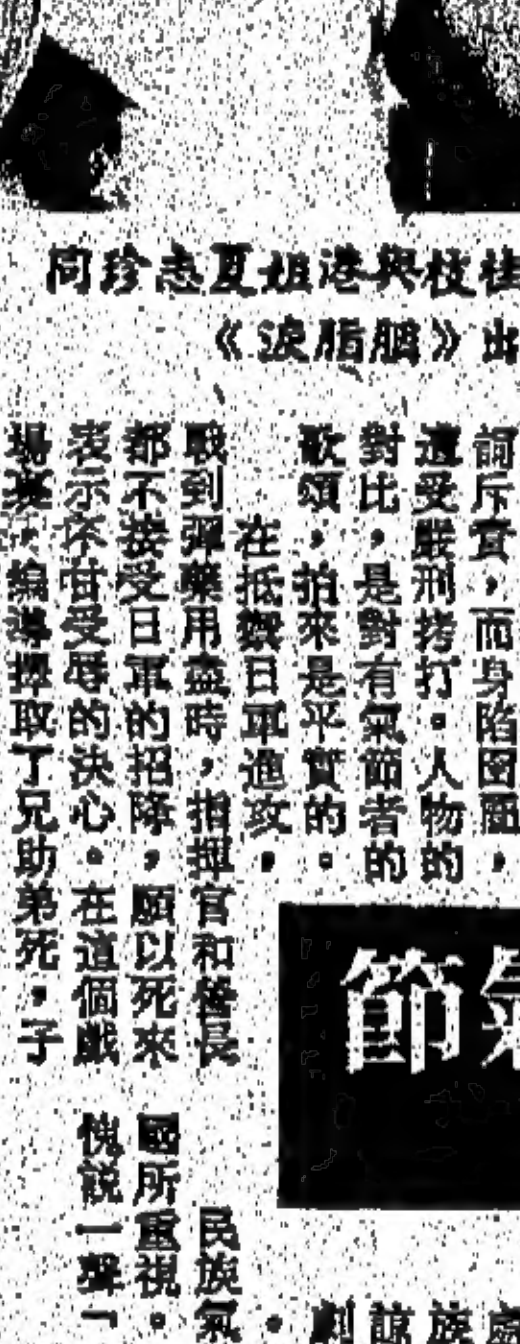 同珍志夏姐港與枝桂
《淚脂胭》出
詞斥責，而身陷囹圄，
遭受嚴刑拷打。人物的
對比，是對有氣節者的
歌頌，拍來是平實的。
在抵禦日軍進攻，
戰到彈藥用盡時，指揮官和營長
都不接受日軍的招降，願以死來
表示不甘受辱的決心。在這個戲
場裏，編導擇取了兄助弟死，子
節氣
民族氣
國所重視。
愧說一聲「